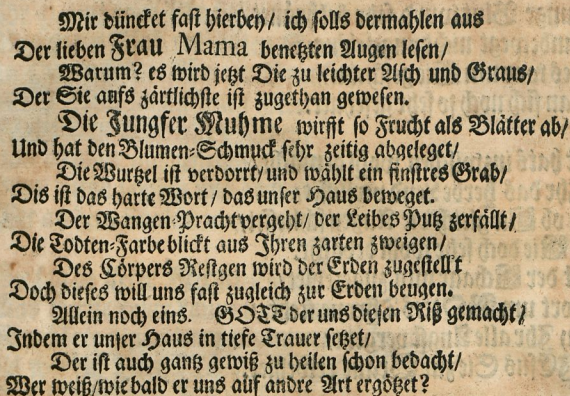 Mir düncket fast hierbey/ ich solls dermahlen aus
Der lieben Frau Mama benetzten Augen lesen/
Warum? es wird jetzt Die zu leichter Asch und Graus/
Der Sie aufs zärtlichste ist zugethan gewesen.
Die Jungfer Muhme wirfft so Frucht als Blätter ab/
Und hat den Blumen-Schmuck sehr zeitig abgeleget/
Die Wurtzel ist verdorrt/ und wählt ein finstres Grab/
Dis ist das harte Wort/ das unser Haus beweget.
Der Wangen-Pracht vergeht/ der Leibes Putz zerfällt/
Die Todten-Farbe blickt aus Ihren zarten zweigen/
Des Cörpers Restgen wird der Erden zugestellt
Doch dieses will uns fast zugleich zur Erden beugen.
Allein noch eins. GOTT der uns diesen Riß gemacht/
Indem er unser Haus in tiefe Trauer setzet/
Der ist auch gantz gewiß zu heilen schon bedacht/
Wer weiß/ wie bald er uns auf andre Art ergötzet?